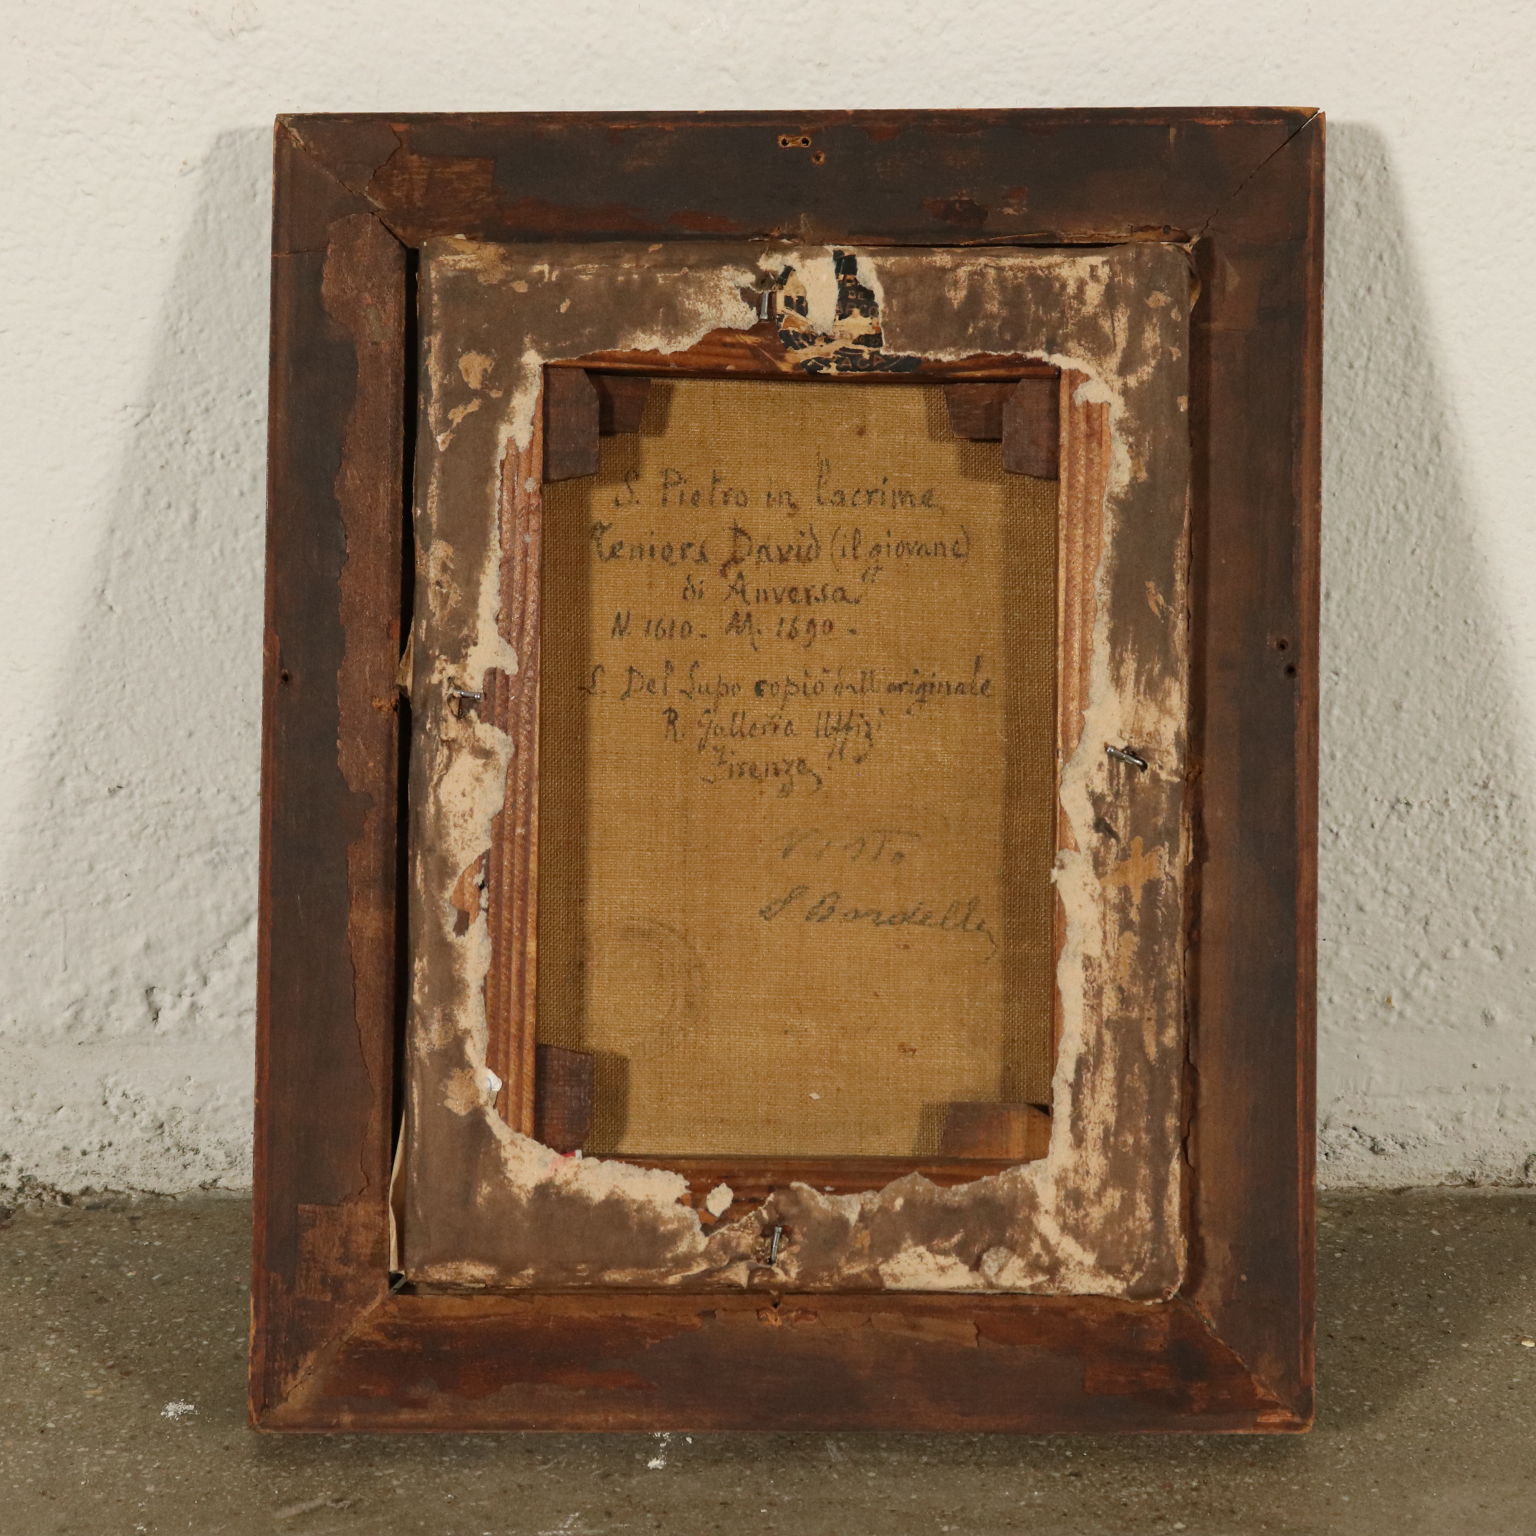 S. Pietro in lacrime
Teniers David (il giovane)
di Anversa
N. 1610. M. 1690.
L. Del Lupo copiò dall'originale
R. Galleria Uffizi
Firenze
Visto